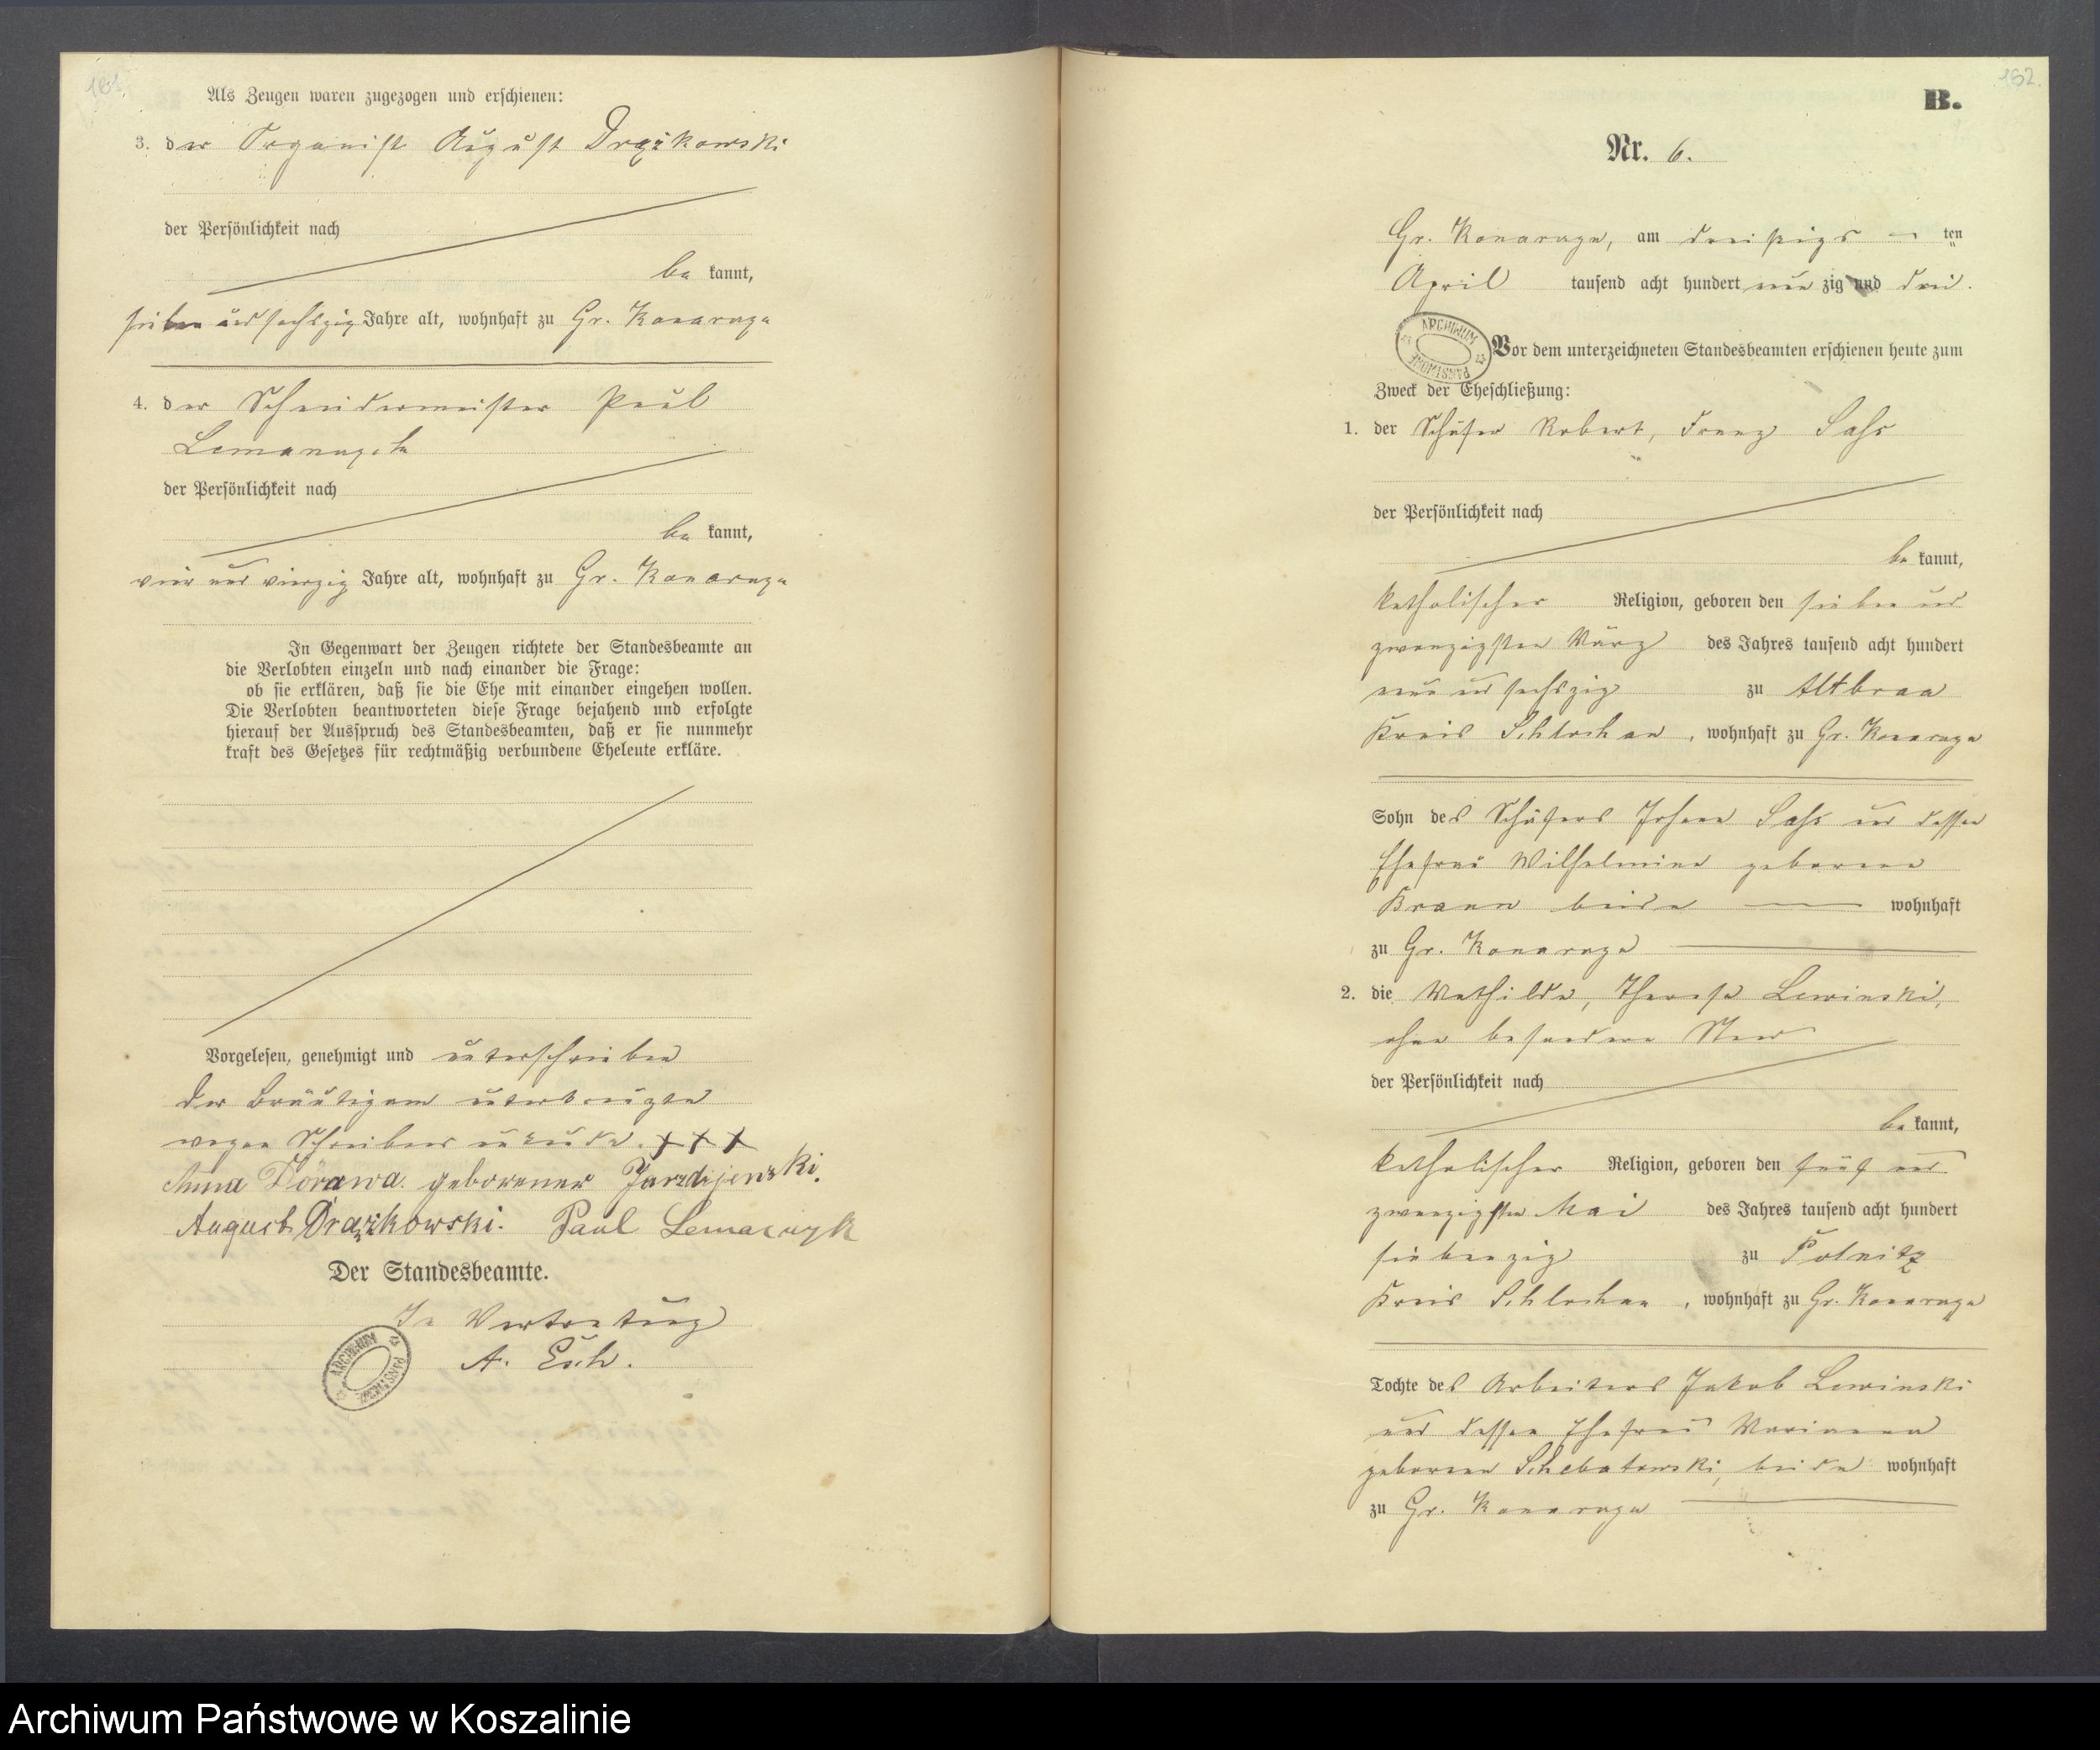 Als Zeugen waren zugezogen und erschienen:
3. der Organist August Drązkowski
der Persönlichkeit nach
be kannt,
sieben und sechszig Jahre alt, wohnhaft zu Gr. Konarzyn
4. der Schneidermeister Paul
der Persönlichkeit nach
be kannt,
vier und vierzig Jahre alt, wohnhaft zu Gr. Konarzyn
In Gegenwart der Zeugen richtete der Standesbeamte an
die Verlobten einzeln und nach einander die Frage:
ob sie erklären, daß sie die Ehe mit einander eingehen wollen.
Die Verlobten beantworteten diese Frage bejahend und erfolgte
hierauf der Ausspruch des Standesbeamten, daß er sie nunmehr
kraft des Gesetzes für rechtmäßig verbundene Eheleute erkläre.
Vorgelesen, genehmigt und unterschrieben
Der Bräutigam unterkreuzte
wegen Schreibens unkunde. + + +
Anna geborener
August Drązkowski. Paul Lemanczyk
Der Standesbeamte.
In Vertretung
A. Esch.
ARCHIWUM PAŃSTWOWE
162
B.
Nr. 6.
Gr. Konarzyn, am dreißigs ten
April tausend acht hundert neun zig und drei.
ARCHIWUM PAŃSTWOWE
Vor dem unterzeichneten Standesbeamten erschienen heute zum
Zweck der Eheschließung:
1. der Schäfer Robert, Franz Sahs
der Persönlichkeit nach
be kannt,
katholischer Religion, geboren den sieben und
zwanzigsten März des Jahres tausend acht hundert
neun und sechszig zu Altbraa
Kreis Schlochau, wohnhaft zu Gr. Konarzyn
Sohn des Schäfers Johann Sahs und dessen
Ehefrau Wilhelmine geborene
beide wohnhaft
zu Gr. Konarzyn
2. die Mathilde, Theresa Lewinski,
ohne besonderen Stand
der Persönlichkeit nach
be kannt,
katholischer Religion, geboren den fünf und
zwanzigsten Mai des Jahres tausend acht hundert
siebenzig zu Polnitz
Kreis Schlochau, wohnhaft zu Gr. Konarzyn
Tochte des Arbeiters Jakob Lewinski
und dessen Ehefrau Marianna
geborene beide wohnhaft
zu Gr. Konarzyn
Archiwum Państwowe w Koszalinie